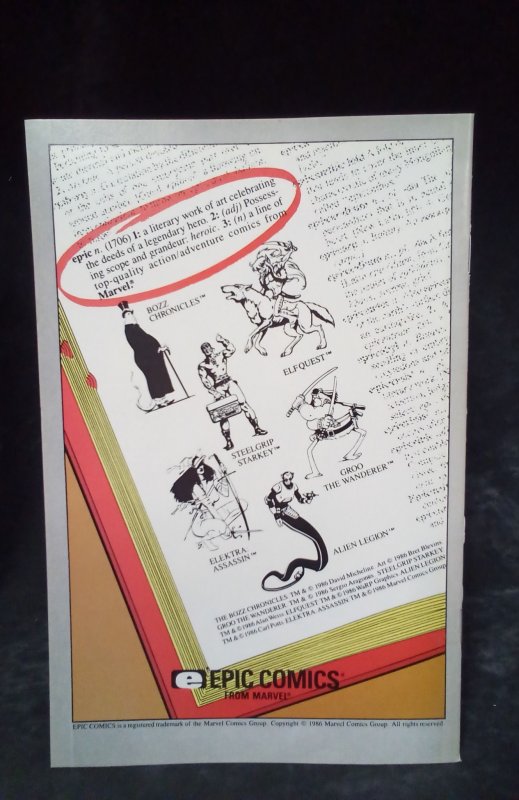 epic n. (1706) 1: a literary work of art celebrating
the deeds of a legendary hero. 2: (adj) Possess-
ing scope and grandeur. heroic. 3: (n) a line of
top-quality action/adventure comics from
Marvel®
BOZZ
CHRONICLES™
ELFQUEST™
STEELGRIP
STARKEY™
GROO
THE WANDERER™
ELEKTRA
ASSASSIN™
ALIEN LEGION™
THE BOZZ CHRONICLES TM & © 1986 David Michelinie. Art © 1986 Bret Blevins.
GROO THE WANDERER TM & © 1986 Sergio Aragones. STEELGRIP STARKEY
TM & © 1986 Alan Weiss ELFQUEST TM & © 1986 WaRP Graphics ALIEN LEGION
TM & © 1986 Carl Potts. ELEKTRA ASSASSIN TM & © 1986 Marvel Comics Group
e EPIC COMICS®
FROM MARVEL®
EPIC COMICS is a registered trademark of the Marvel Comics Group. Copyright © 1986 Marvel Comics Group. All rights reserved